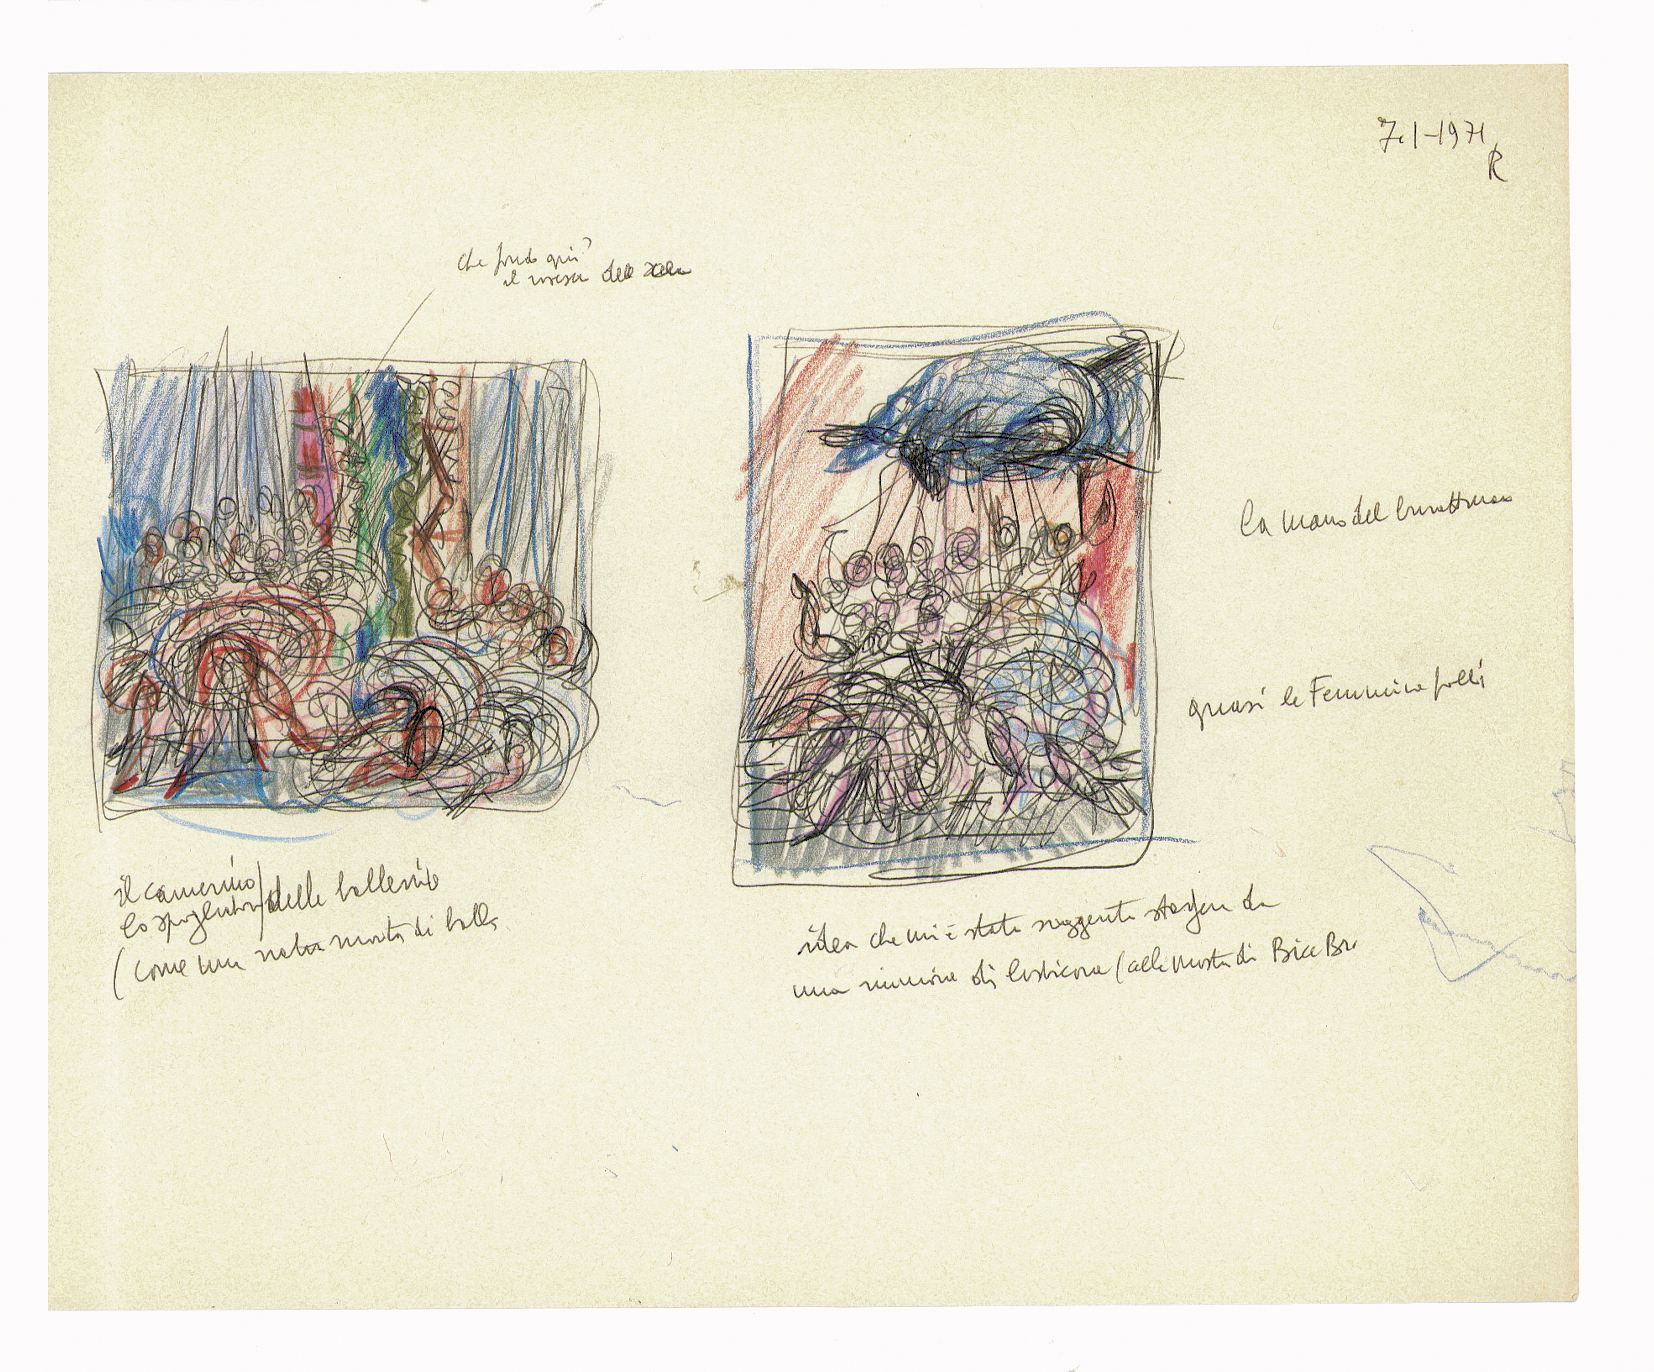 7-1-1971
R
che fondo qui?
il rosa della
la mano del burattinaio
quasi le Femmine folli
il camerino
lo spogliatoio / delle ballerine
(come una natura morta di
idea che mi è stata suggerita stasera da
una di (alla mostra di Bice